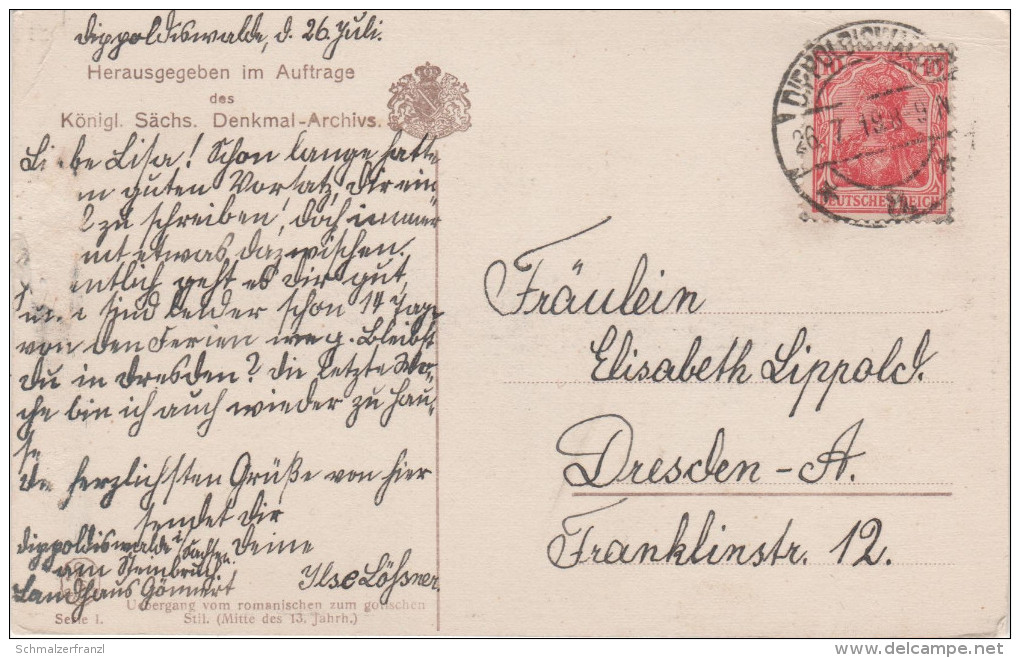 Dippoldiswalde, d. 26. Juli.
Herausgegeben im Auftrage
des
Königl. Sächs. Denkmal-Archivs.
Liebe Lisa! Schon lange hatte
guten Vorsatz, Dir ein
zu schreiben, doch immer
mt etwas dazwischen.
entlich geht es Dir gut,
sind leider schon 14 Tage
von den Ferien weg. Bleibst
Du in Dresden? Die letzte Wo-
che bin ich auch wieder zu Hau-
se
Die herzlichsten Grüße von hier
sendet Dir
Deine
Ilse Lößner.
Dippoldiswalde i/Sachsen.
am Steinbruch
Landhaus
Uebergang vom romanischen zum gotischen
Serie I. Stil. (Mitte des 13. Jahrh.)
DIPPOLDISWALDE
26. 7. 18. 8-9 N
10
DEUTSCHES REICH
Fräulein
Elisabeth Lippold.
Dresden-A.
Franklinstr. 12.
Schmalzerfranzl
delcampe.net